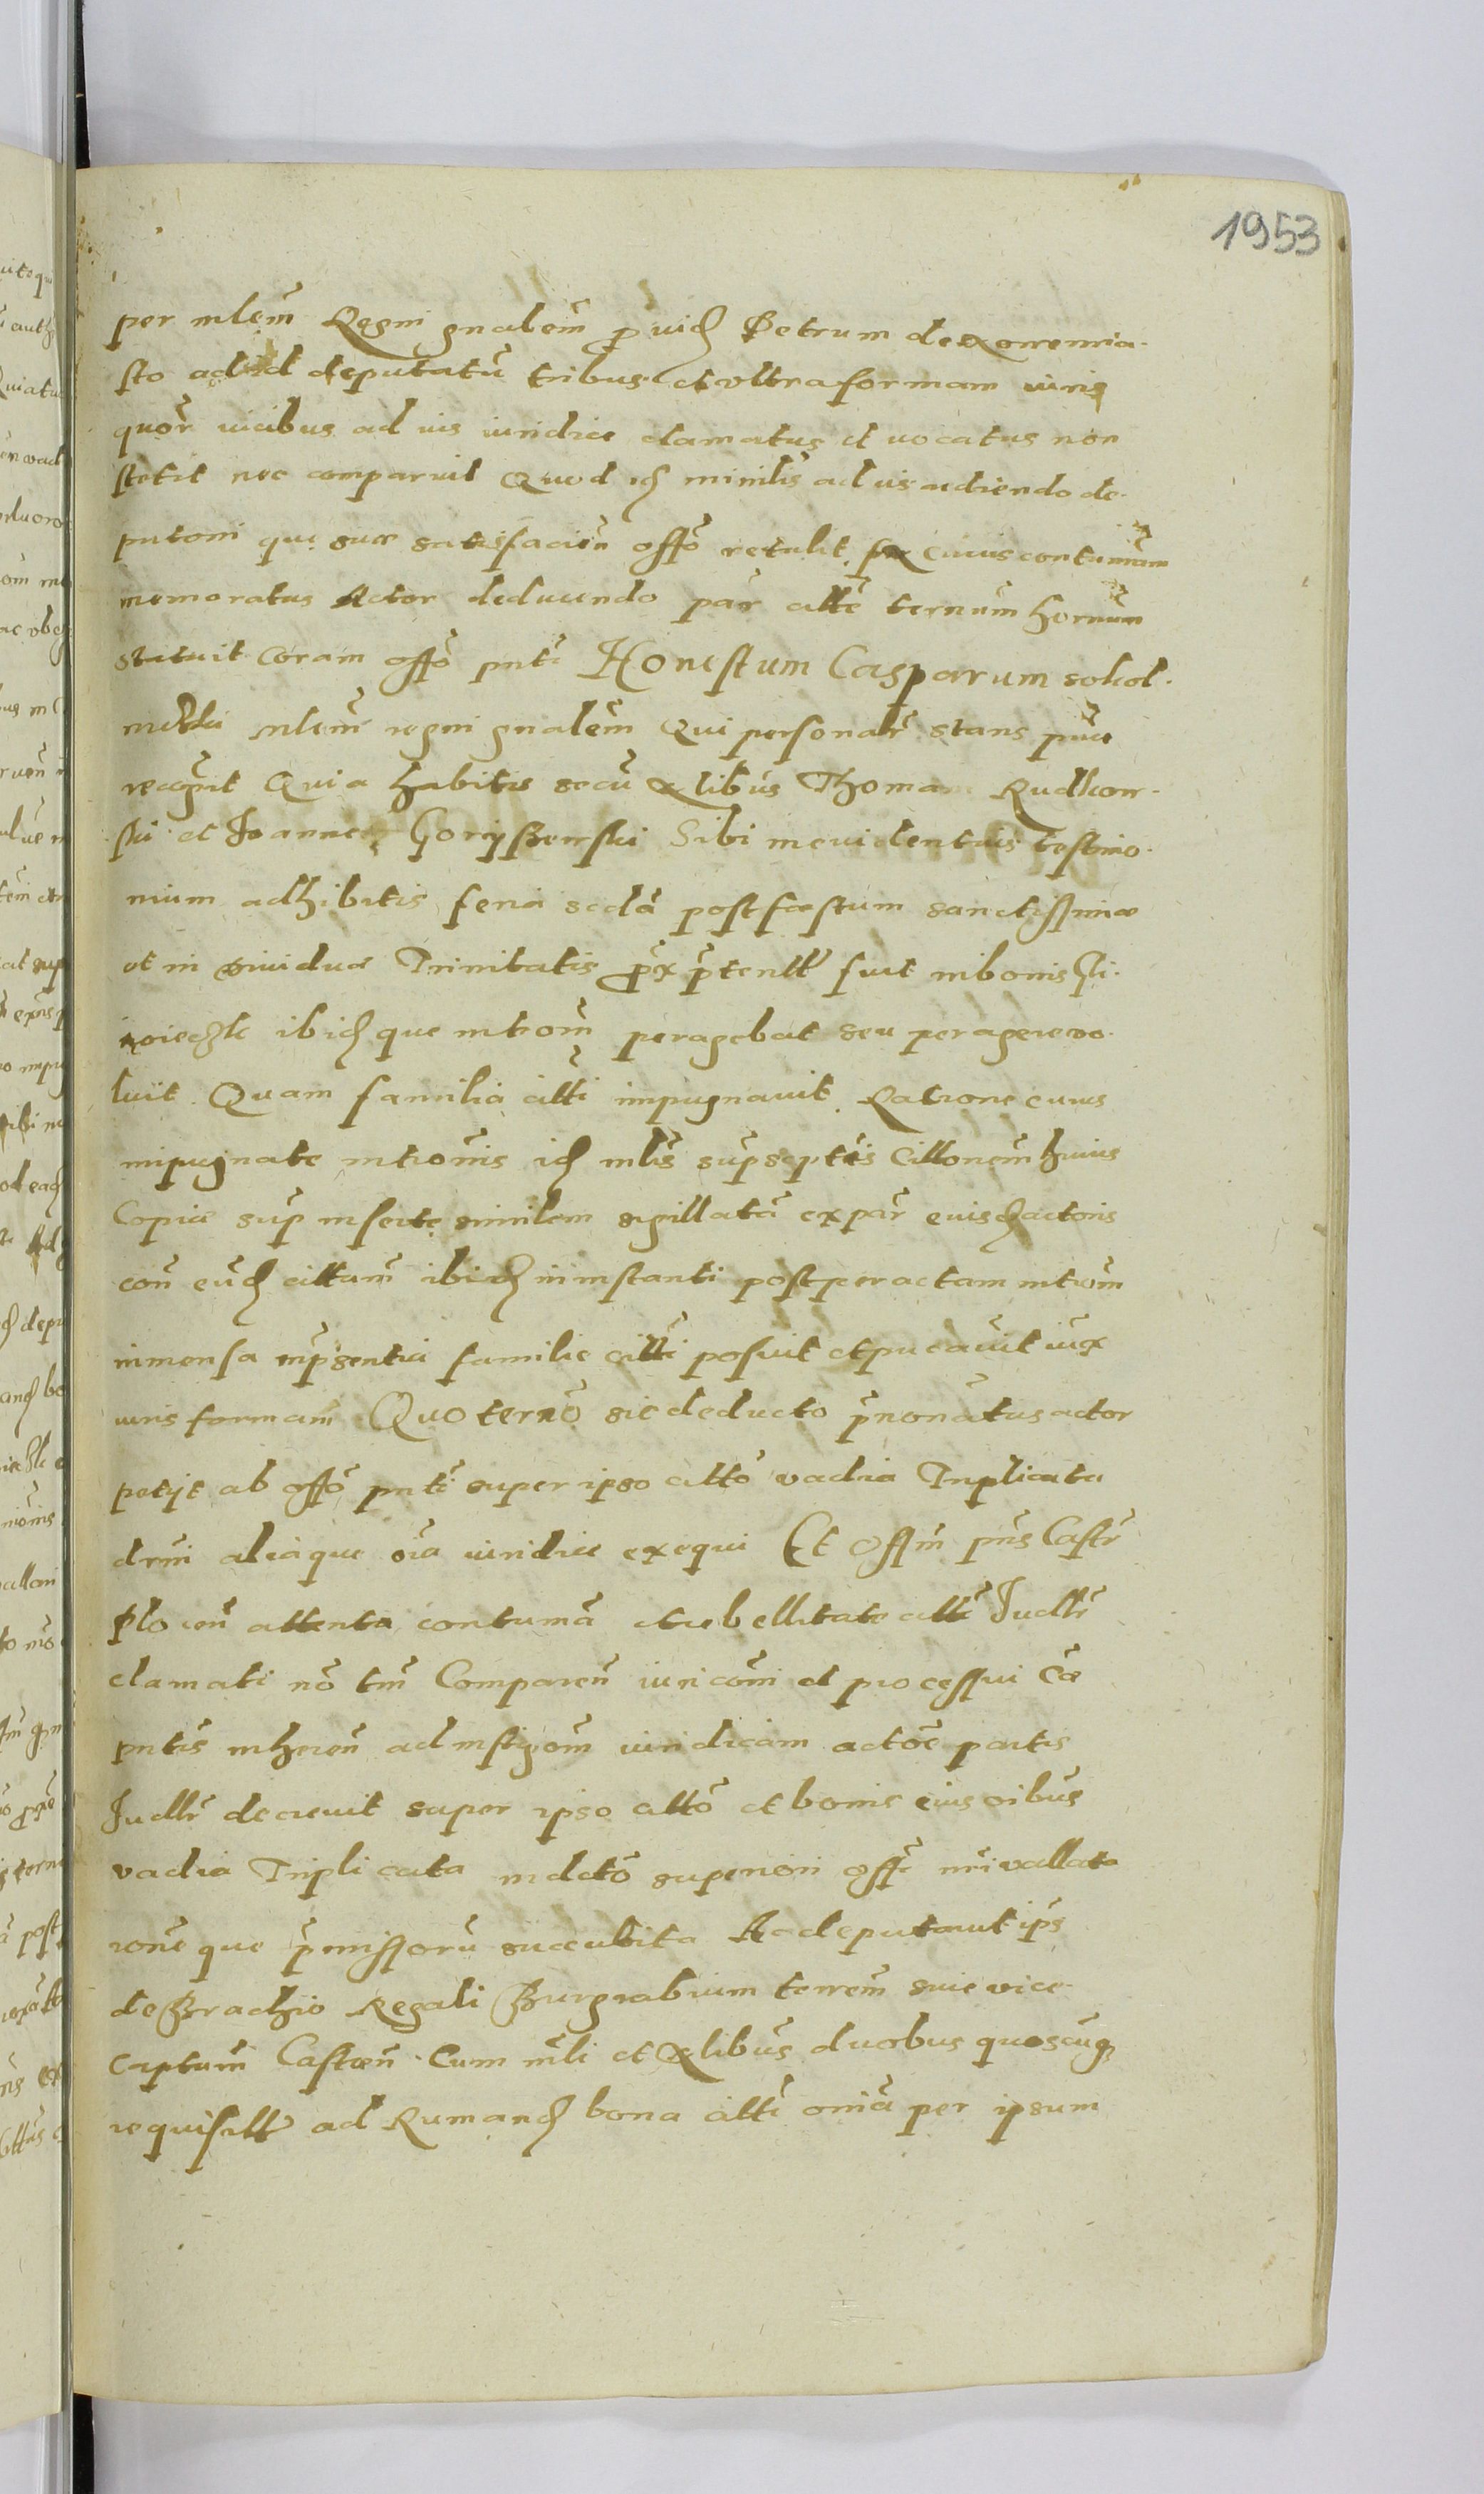 1953
per mlem̃ Regni gnalem̃ p uid Petrum de
sto ad id deputatũ tribus et ultra formam iuris
quor̃ uicibus ad ius iuridice clamatus et uocatus non
stetit nec comparuit Quod id ad ius adiendo de-
putoni que sue satisfacien̄ offo retulit ex cuius contumãm
memoratus Actor deducendo par citti termũm hornũm
statuit coram offo pnti Honestum Casparum
mlem̃ regni gnalem̃ Qui personalr̃ stans pñia
recogit Quia habitis secũ xlibus Thoma Rudkow-
ski et Joanne Goryszewski Sibi in euidentius testimo-
nium adhibitis feria scdã post festum sanctissimæ
et indiuiduæ Trinitatis prox ptentt fuit in bonis
ibidque introm̃ peragebat seu peragere uo-
luit Quam familia citti impugnauit Ratione cuius
impugnate introm̃is id mlis supscptis Cittonem̃ huius
Copiæ sup inserte similem sigillatã ex par eiusd actoris
con̄ eũd cittum̃ ibid in instanti post peractam introm̃
in mensa in pntia familie citti posuit et publicauit iux
iuris formam Quo ternõ sic deducto pnonatus actor
petijt ab offo pnti super ipso citto vadia Triplicata
dm̃i aliaque oĩa iuridice exequi Et Offm̃ pñs Castr̃
Plocen̄ attenta contumã et rebellitate citti Judlr̃
clamati nõ tm̃ Comparen̄ iuri com̃i et processui Cæ
pntis inheren̄ ad instigom̃ iuridicam actoẽ partis
Judlr̃ decreuit super ipso citto et bonis eius oibus
vadia Triplicata indcto superiori offi mi uallata
rone que pmissorũ succubita Ac deputauit ips
de Brachio Regali Burgrabium terrem̃ siue vice-
captum̃ Castren̄ Cum mli et xlibus duobus quoscumq
requisitt ad Rumand bona citti omĩa per ipsum